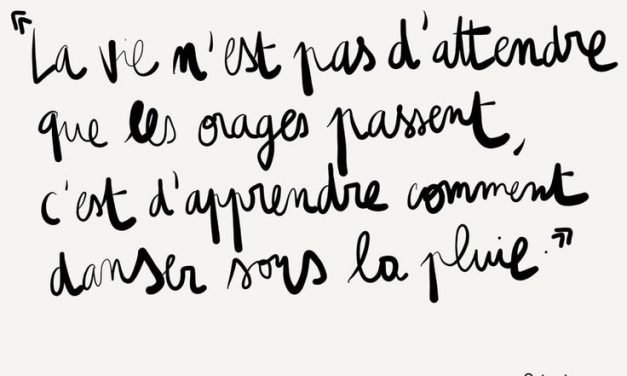 « La vie n'est pas d'attendre
que les orages passent,
c'est d'apprendre comment
danser sous la pluie. »